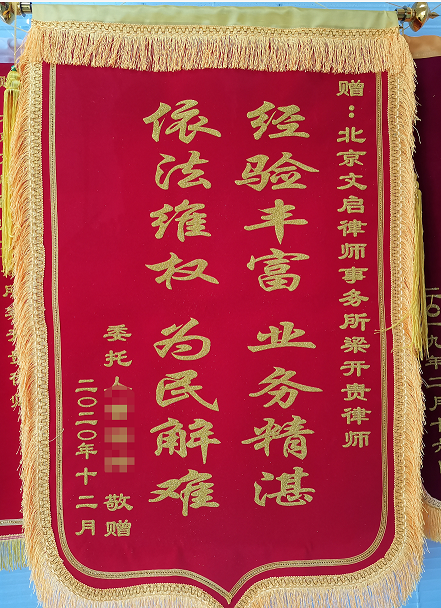 赠：北京文启律师事务所梁开贵律师
经验丰富 业务精湛
依法维权 为民解难
委托人 敬赠
二〇二〇年十二月